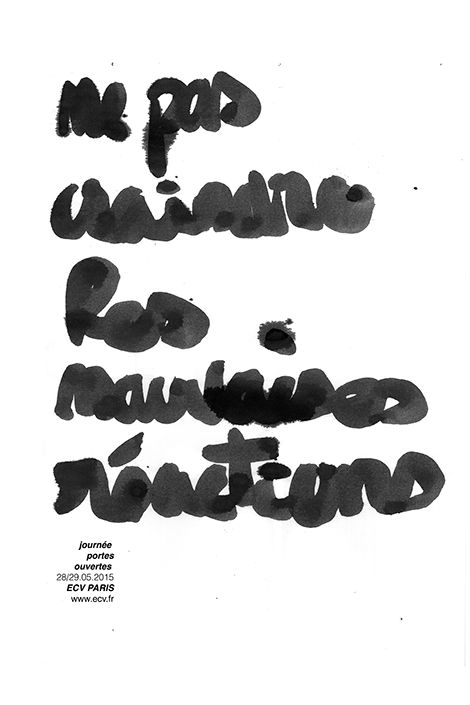 ne pas
craindre
les
mauvaises
réactions
journée
portes
ouvertes
28/29.05.2015
ECV PARIS
www.ecv.fr